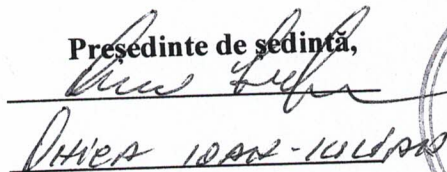 Președinte de ședință,
GHICA IOAN-IULIAN